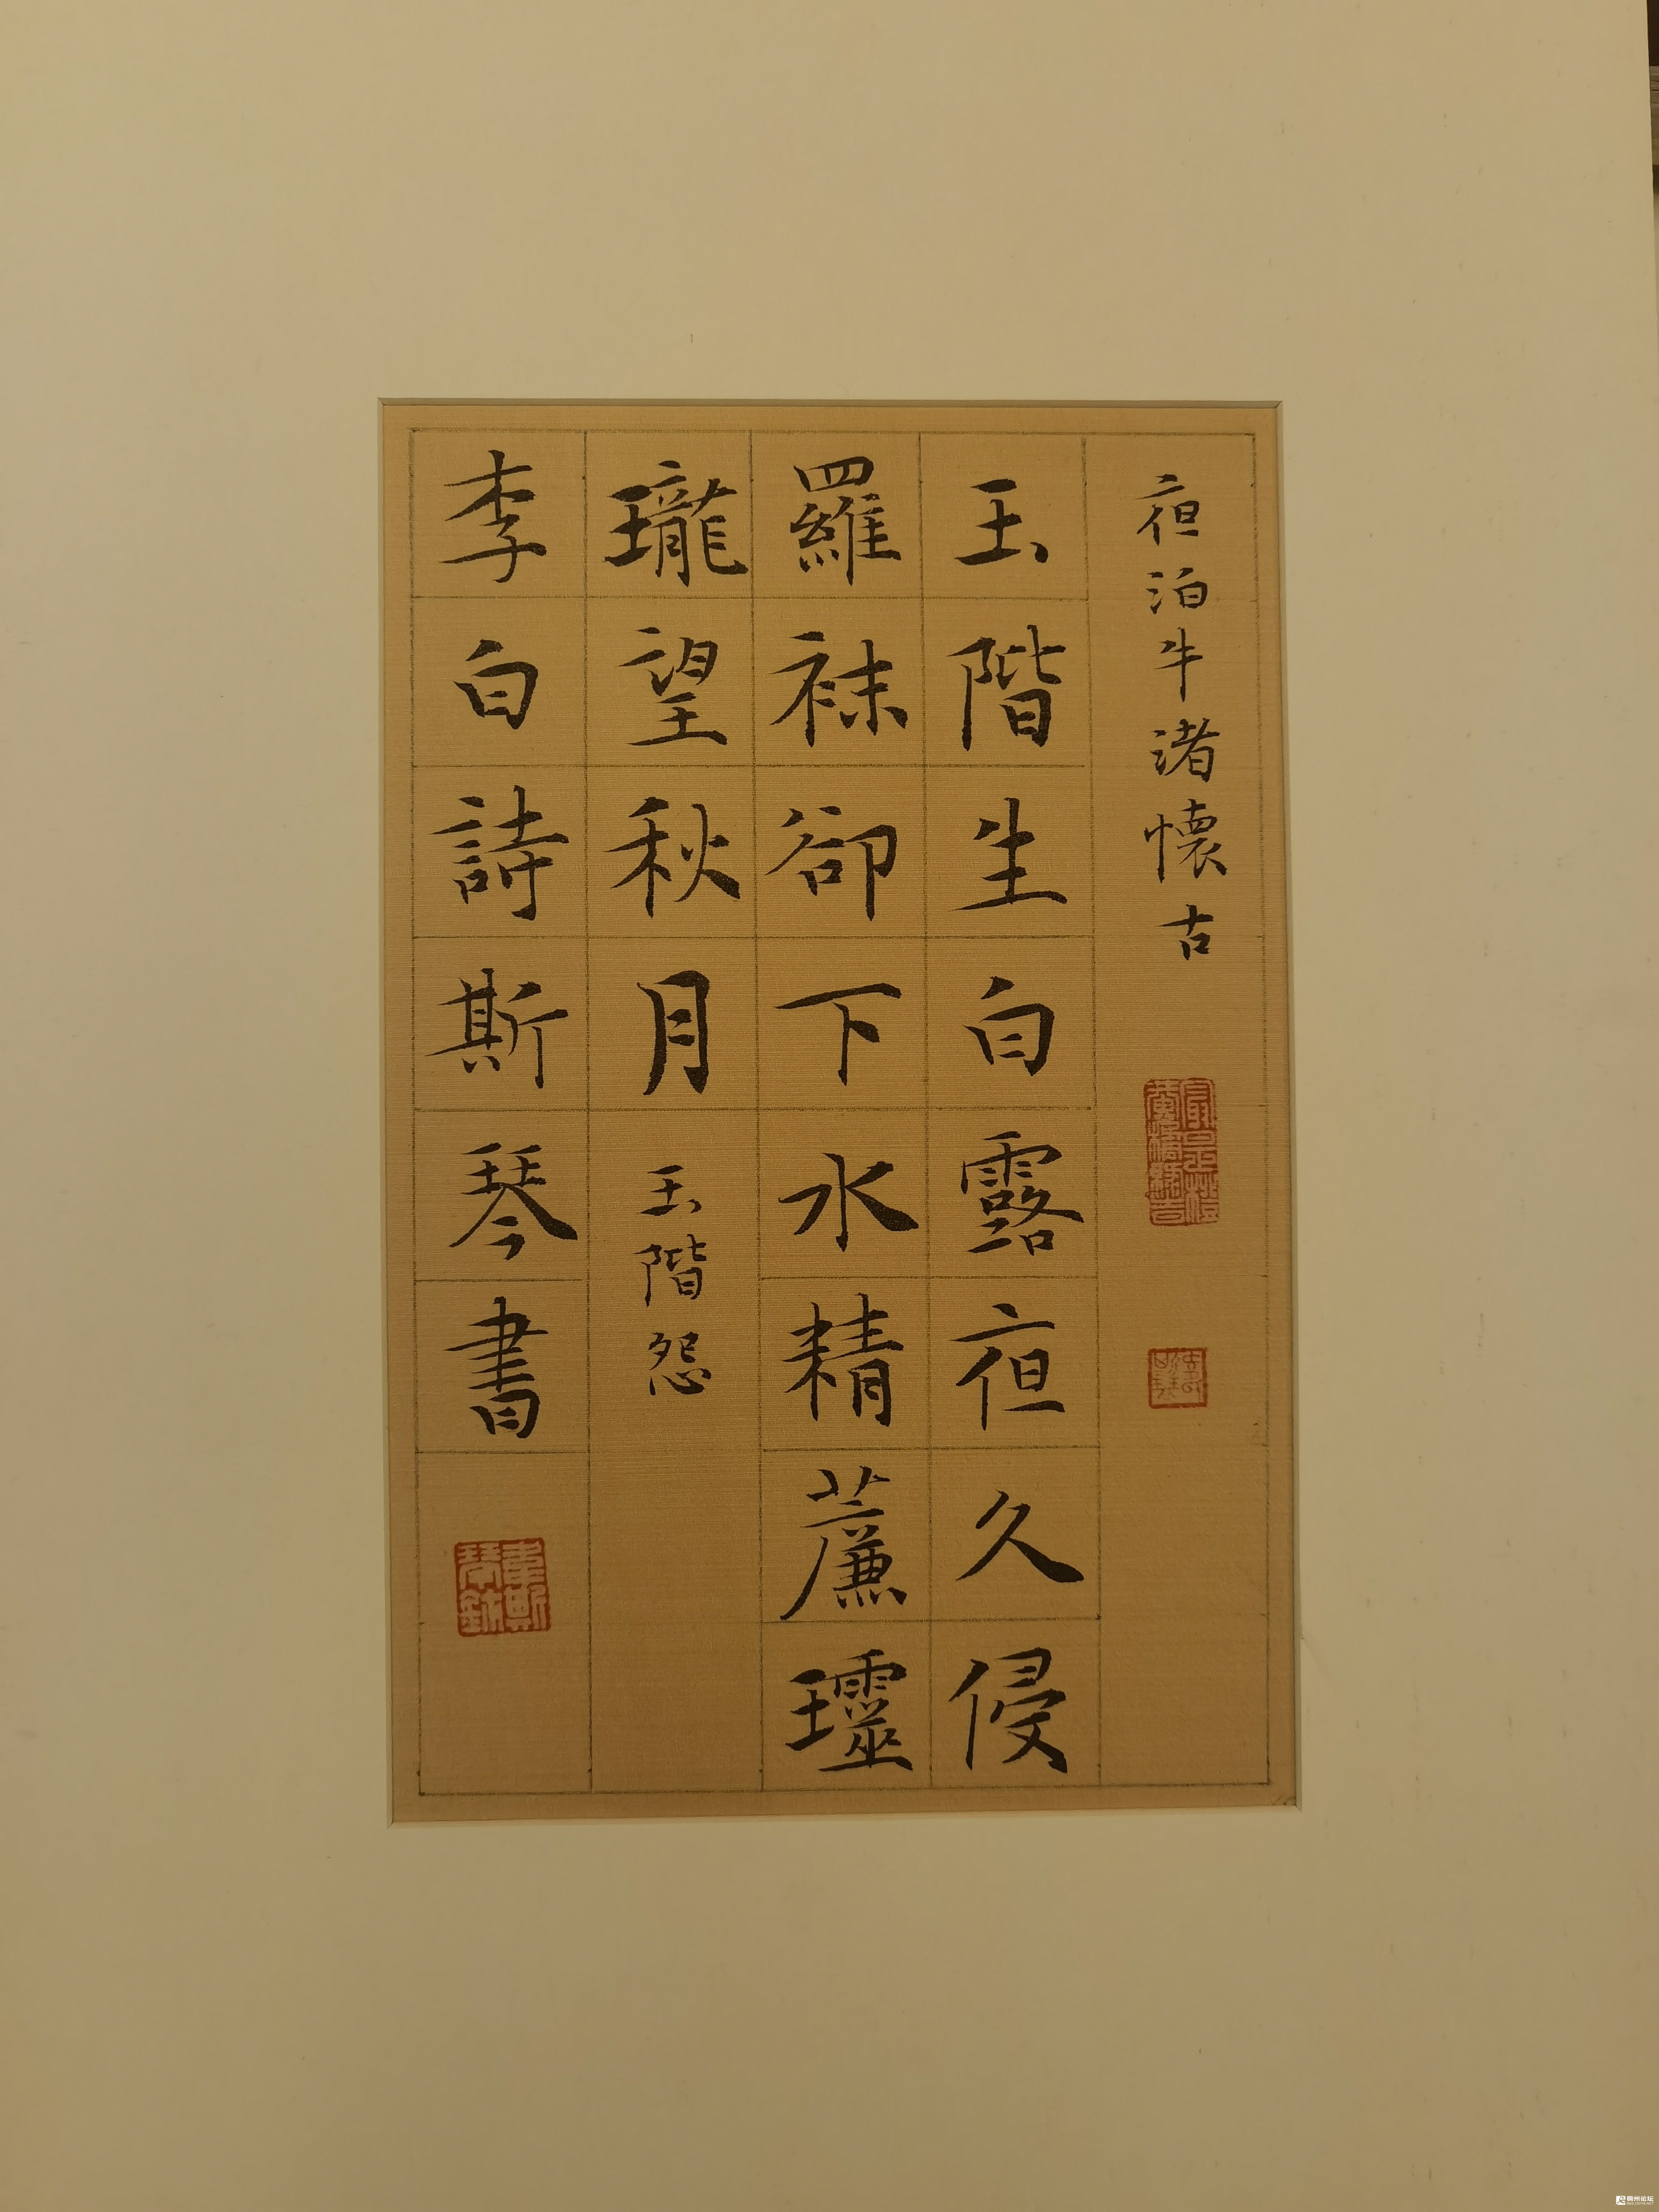 夜泊牛渚懷古
玉階生白露夜久侵
羅袜卻下水精薕瓏
瓏望秋月
玉階怨
李白詩斯琴書
韋斯琴鉨